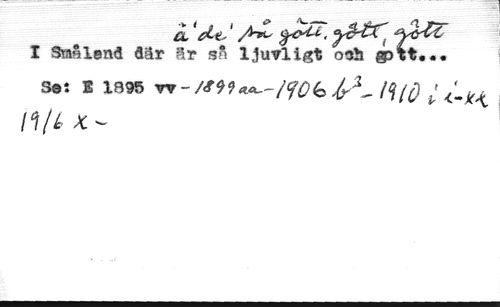 ä' de' så gött, gött, gött
I Småland där är så ljuvligt och gott...
Se: E 1895 vv - 1899 aa - 1906 b³ - 1910 i i-xx
1916 x -